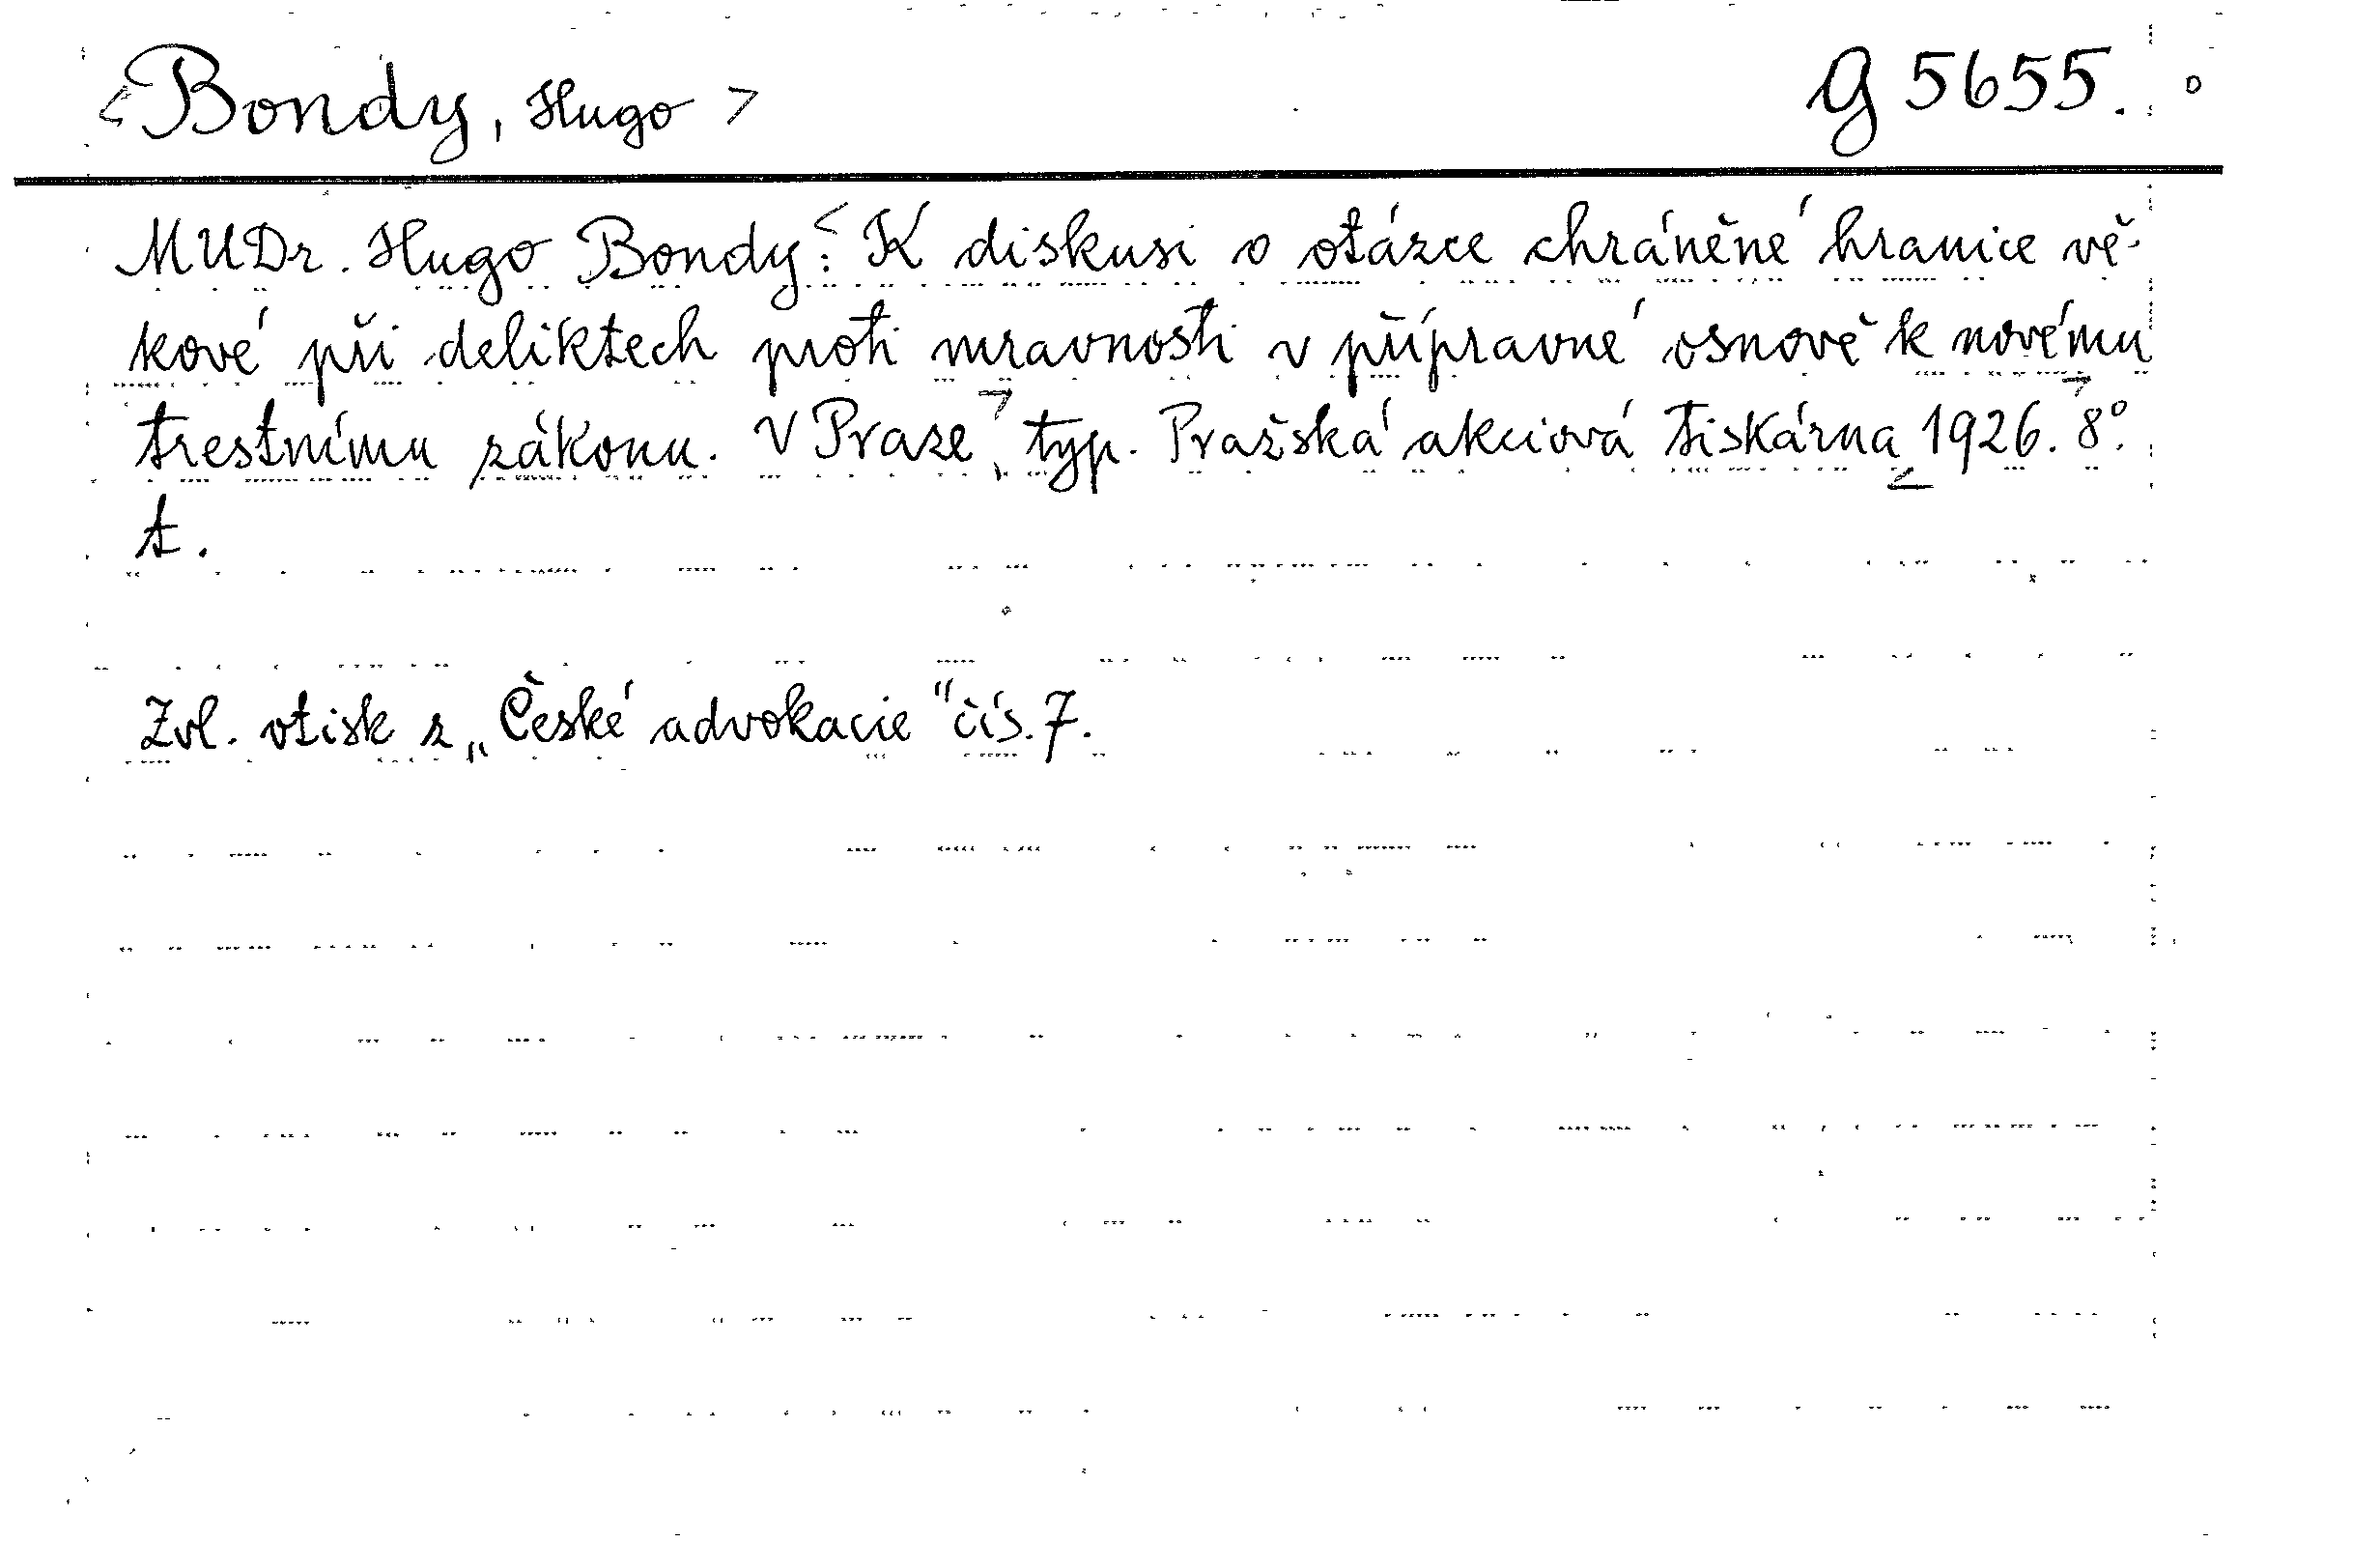 <Bondy, Hugo> G 5655.
MUDr. Hugo Bondy: <K diskusi o otázce chráněné hranice vě-
kové při deliktech proti mravnosti v přípravné osnově k novému
trestnímu zákonu. V Praze>, typ. Pražská akciová tiskárna <1926.> 8°.
t.
Zvl. otisk z „České advokacie“ čís. 7.